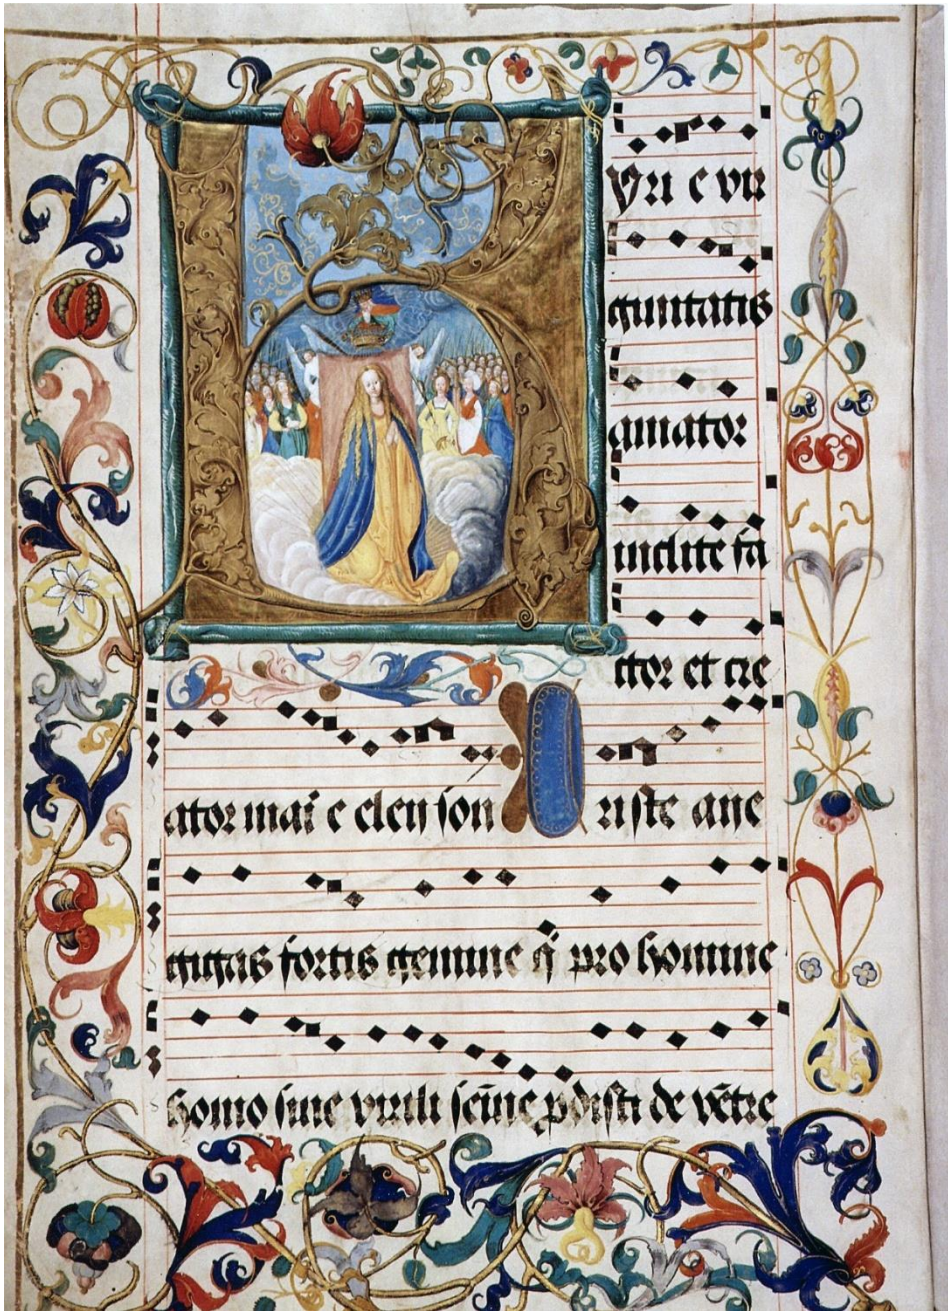 Kyri e vir
ginitatis
amator
inclite fa
ctor et cre
ator mar̄ e eleyson Xriste
gigas fortis gemine q̄ pro homine
homo sine virili sem̄ine p̄disti de vētre